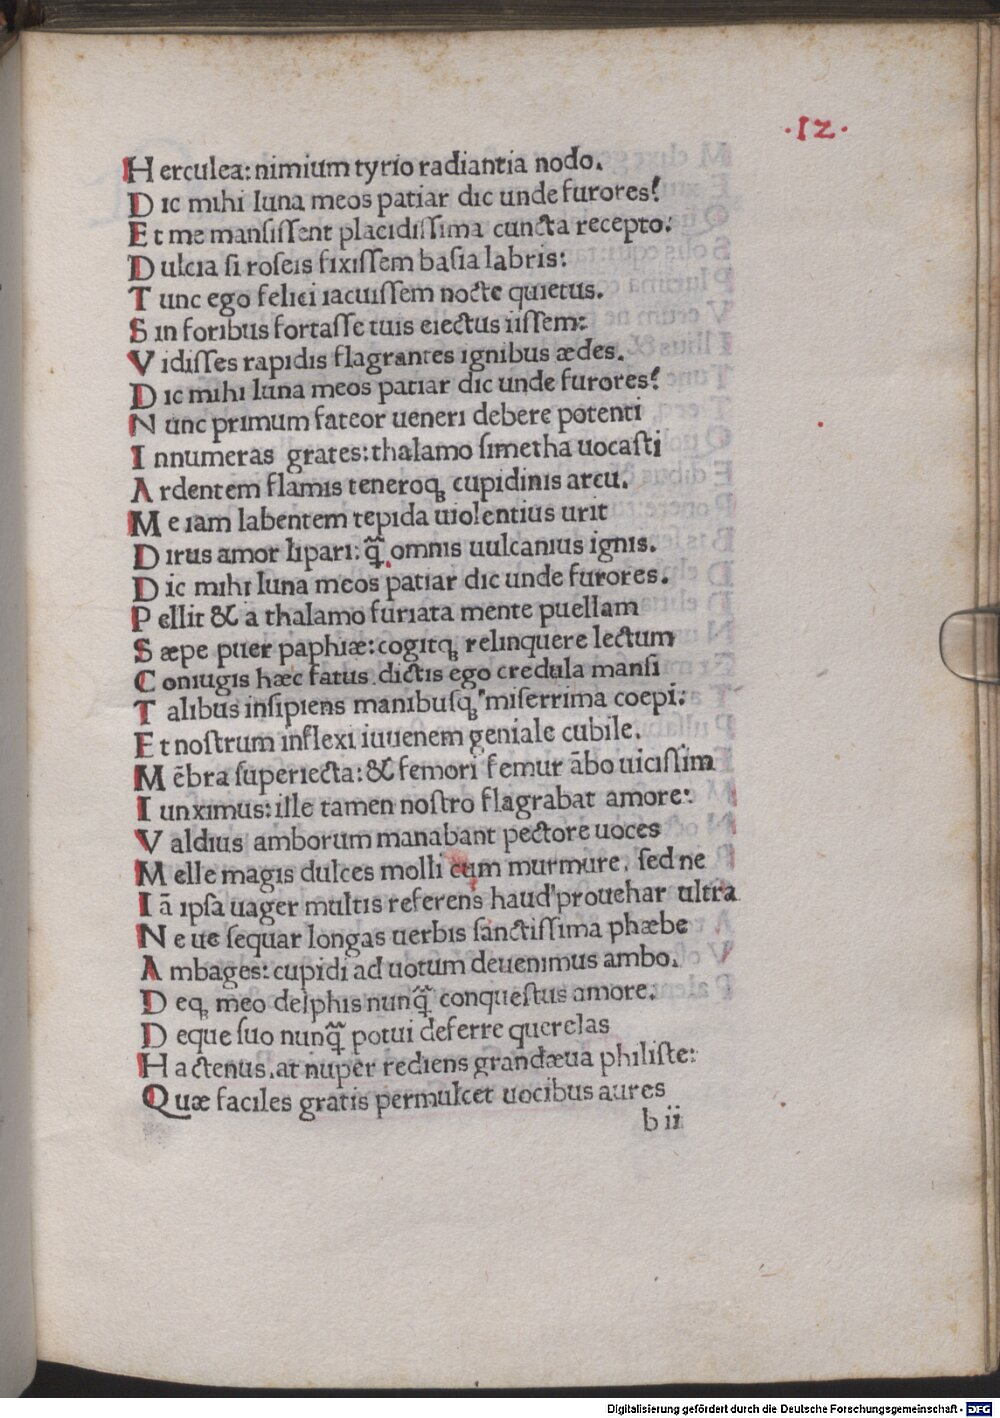 ·12·
H erculea: nimium tyrio radiantia nodo.
D ic mihi luna meos patiar dic unde furores?
E t me mansissent placidissima cuncta recepto:
D ulcia si roseis fixissem basia labris:
T unc ego felici iacuissem nocte quietus.
S in foribus fortasse tuis eiectus iissem:
V idisses rapidis flagrantes ignibus ædes.
D ic mihi luna meos patiar dic unde furores?
N unc primum fateor ueneri debere potenti
I nnumeras grates: thalamo simetha uocasti
A rdentem flamis teneroqꝫ cupidinis arcu.
M e iam labentem tepida uiolentius urit
D irus amor lipari: q̃̃ omnis uulcanius ignis.
D ic mihi luna meos patiar dic unde furores.
P ellit & a thalamo furiata mente puellam
S æpe puer paphiæ: cogitqꝫ relinquere lectum
C oniugis hæc fatus. dictis ego credula mansi
T alibus insipiens manibusqꝫ miserrima coepi:
E t nostrum inflexi iuuenem geniale cubile.
M ēbra superiecta: & femori femur ābo uicissim
I unximus: ille tamen nostro flagrabat amore:
V aldius amborum manabant pectore uoces
M elle magis dulces molli cum murmure. sed ne
I ā ipsa uager multis referens haud prouehar ultra
N e ue sequar longas uerbis sanctissima phæbe
A mbages: cupidi ad uotum deuenimus ambo.
D eqꝫ meo delphis nunq̃̃ conquestus amore.
D eque suo nunq̃̃ potui deferre querelas
H actenus. at nuper rediens grandæua philiste:
Quæ faciles gratis permulcet uocibus aures
b ii
Digitalisierung gefördert durch die Deutsche Forschungsgemeinschaft - DFG